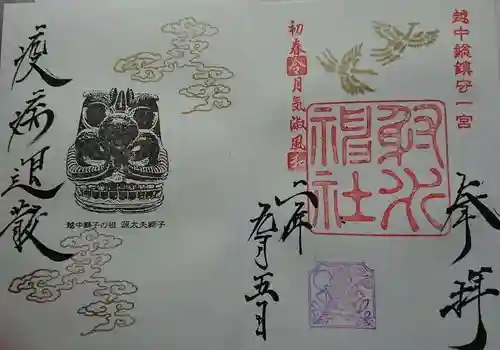 越中総鎮守一宮
奉拝
射水神社
初春令月気淑風和
六年
五月五日
疫病退散
越中獅子の祖 源太夫獅子